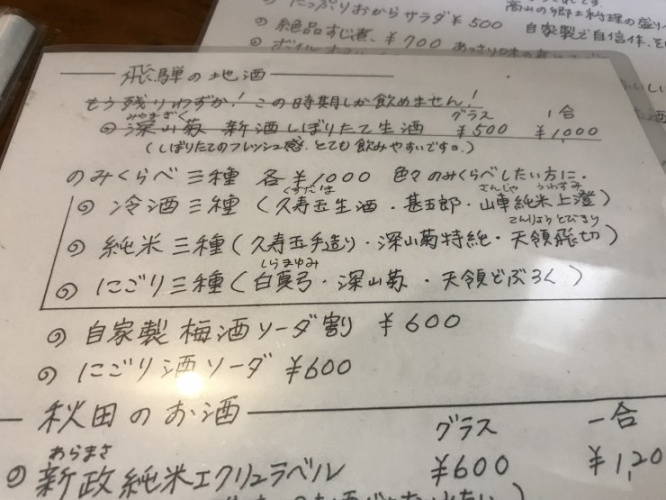 たっぷりおからサラダ ¥500
絶品すじ煮 ¥700 あっさり
自家製で自信作
飛騨の地酒
もう残りわずか! この時期しか飲めません!
グラス 一合
みやまぎく
深山菊 新酒しぼりたて生酒 ¥500 ¥1,000
(しぼりたてのフレッシュ感。とても飲みやすいです。)
のみくらべ三種 各¥1000 色々のみくらべしたい方に・
くすだま さんしゃ うわずみ
冷酒三種(久寿玉生酒・甚五郎・山車純米上澄)
てんりょうとびきり
純米三種(久寿玉手造り・深山菊特純・天領飛切)
しらまゆみ
にごり三種(白真弓・深山菊・天領どぶろく)
自家製梅酒ソーダ割 ¥600
にごり酒ソーダ ¥600
秋田のお酒
グラス 一合
あらまさ
新政純米エクリュラベル ¥600 ¥1,20